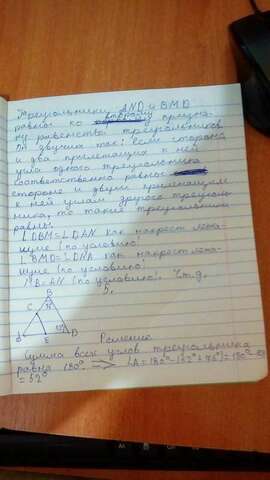 Треугольники AND и BMD
равно ко второму призна-
ку равенства треугольников
Он звучит так: если сторона
и два прилежащих к ней
угла одного треугольника
соответственно равно
стороне и двум прилежащим
к ней углам другого треуголь-
ника, то такие треугольники
равны.
∠DBM=∠DAN как накрест лежа-
щие (по условию)
∠BMD=∠DNA как накрест лежа-
щие (по условию)
MB=AN (по условию). Ч.т.д.
5.
B
C
A
E
D
Решение
Сумма всех углов треугольника
равна 180°
=52°